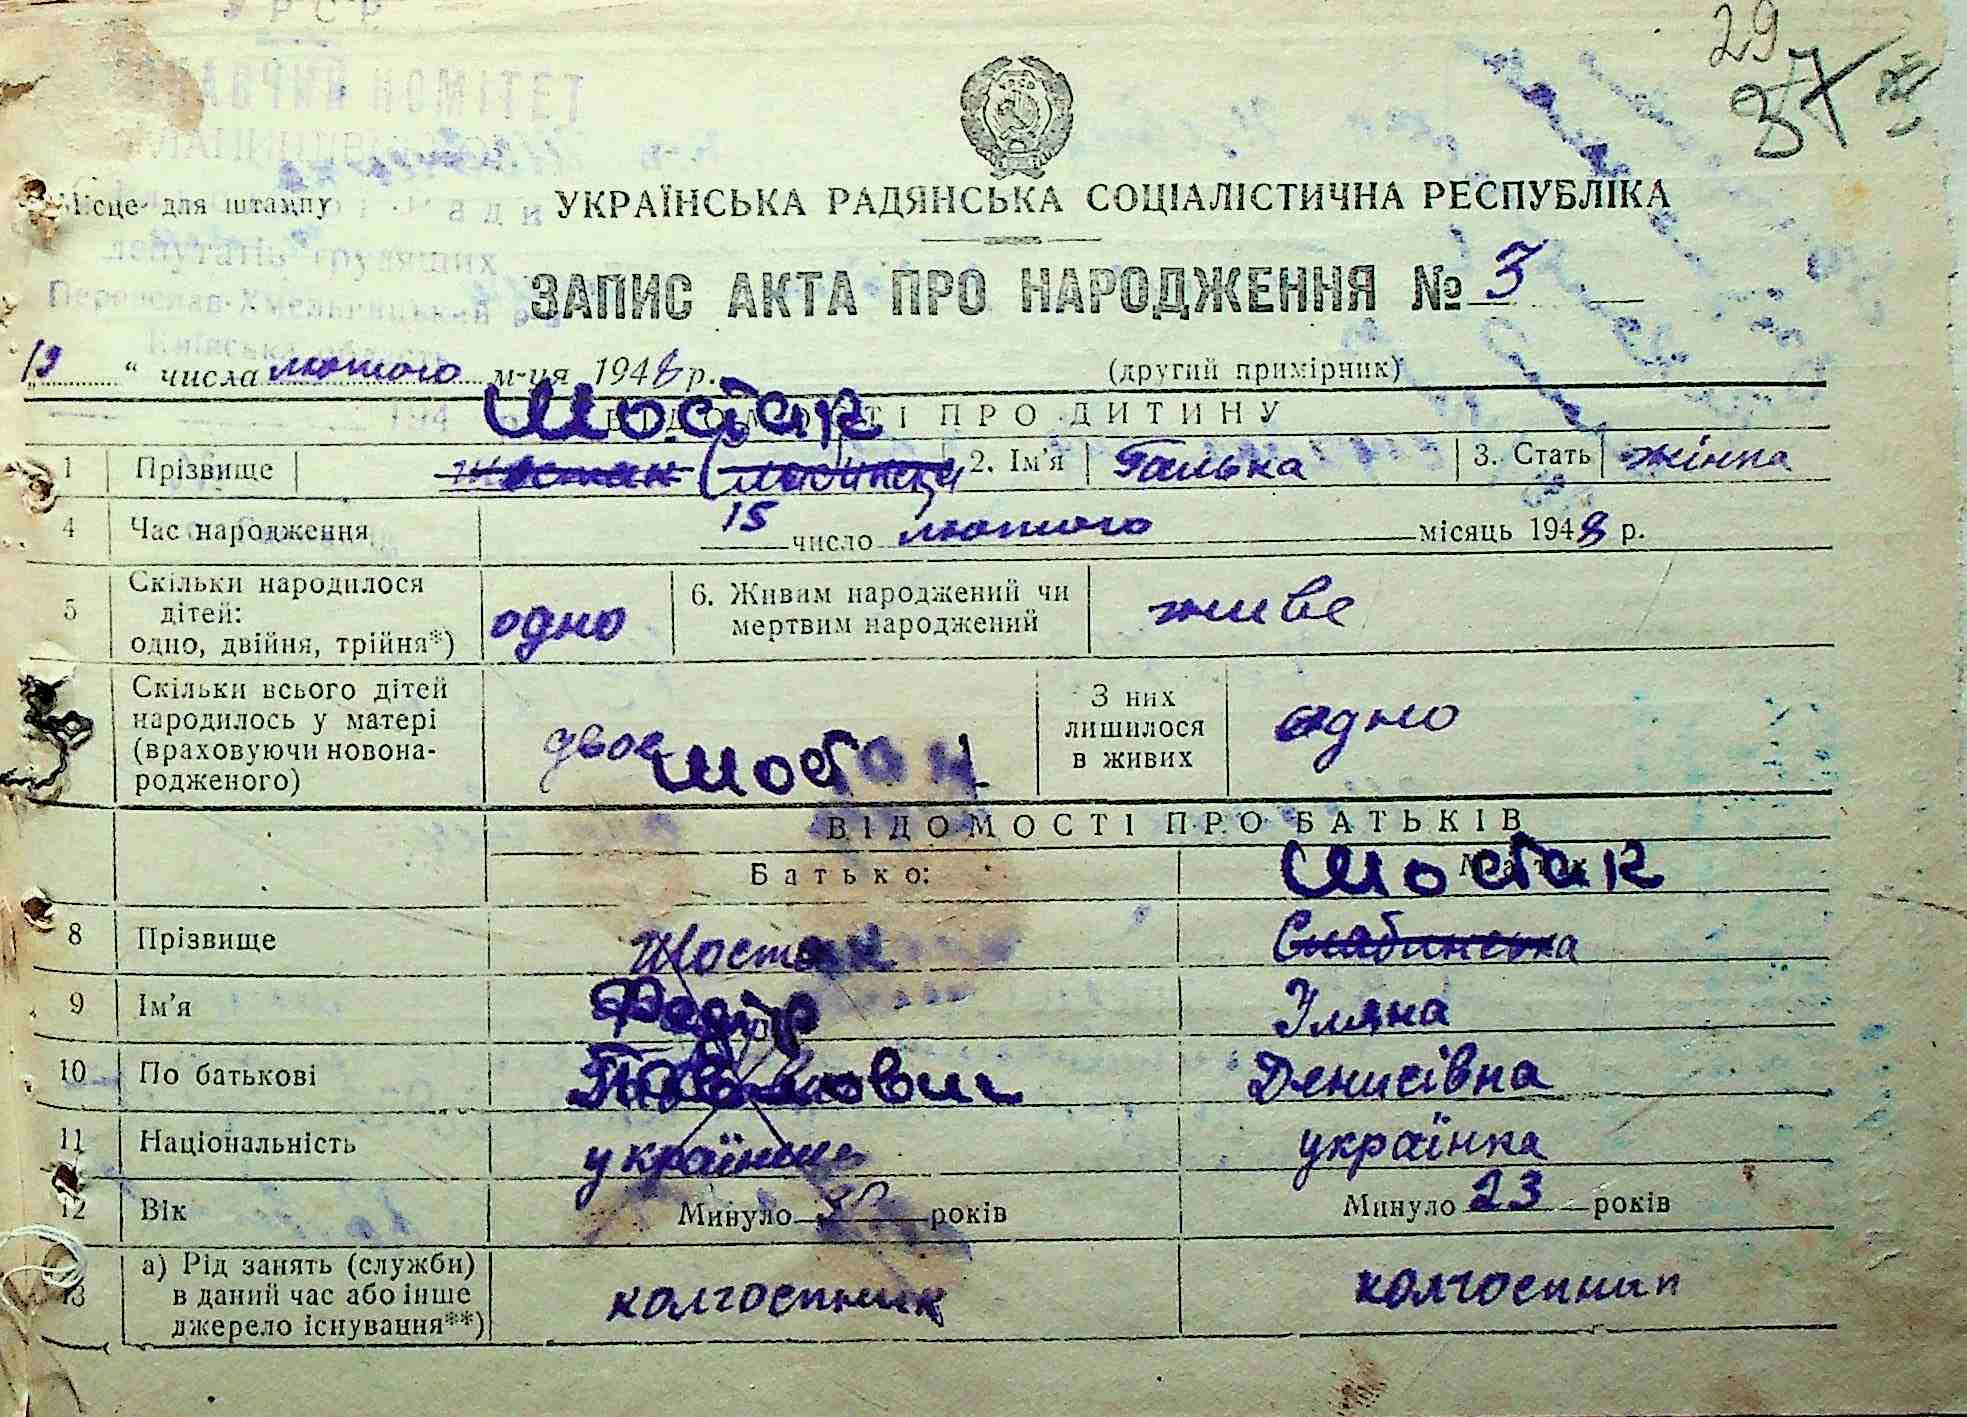 УРСР
29
37
Місце для штампу
УКРАЇНСЬКА РАДЯНСЬКА СОЦІАЛІСТИЧНА РЕСПУБЛІКА
депутатів трудящих
Переяслав-Хмельницький р-н
Київська область
ЗАПИС АКТА ПРО НАРОДЖЕННЯ № 3
„19“ числа лютого м-ця 1948 р. (другий примірник)
Шостак
ВІДОМОСТІ ПРО ДИТИНУ
1 Прізвище 2. Ім'я Галька 3. Стать жінка
4 Час народження 15 число лютого місяць 1948 р.
5 Скільки народилося дітей: одно, двійня, трійня*) одно 6. Живим народжений чи мертвим народжений живе
Скільки всього дітей народилось у матері (враховуючи новонародженого) двоє З них лишилося в живих одно
Шостак
ВІДОМОСТІ ПРО БАТЬКІВ
Батько: Мати
Шостак
8 Прізвище Шостак Слабинська
9 Ім'я Федір Уляна
10 По батькові Павлович Денисівна
11 Національність українець українка
12 Вік Минуло років Минуло 23 років
13 а) Рід занять (служби) в даний час або інше джерело існування**) колгоспник колгоспниц